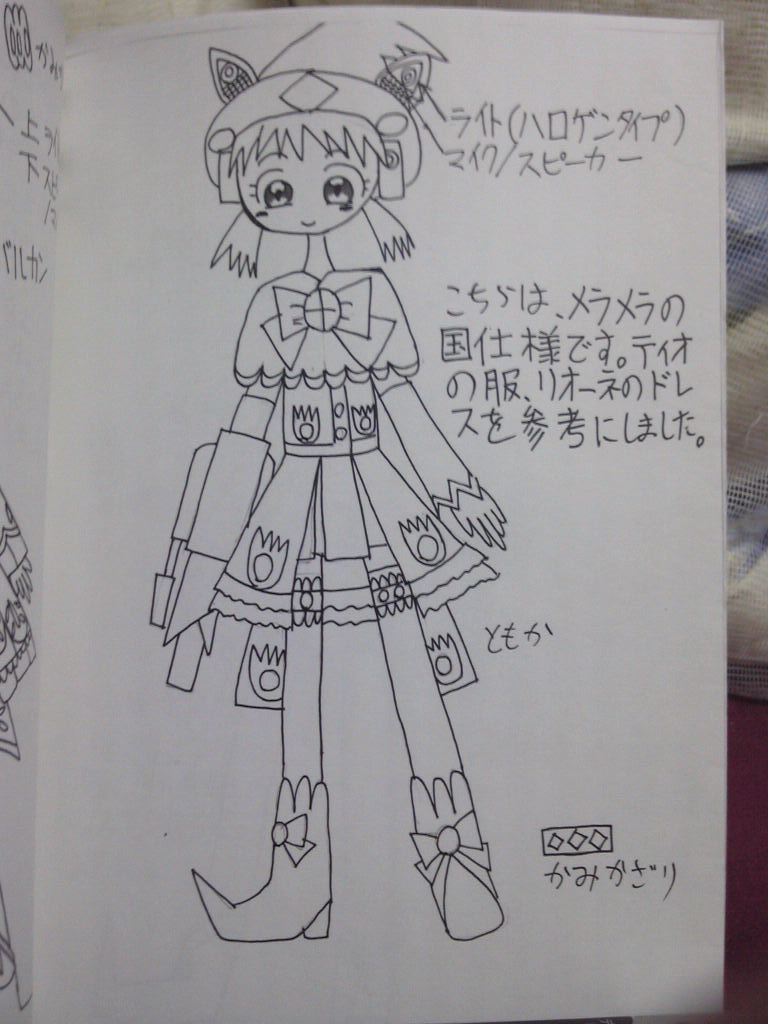 かみかざり
上ライ
下スピ
/マ
バルカン
ライト(ハロゲンタイプ)
マイク/スピーカー
こちらは、メラメラの
国仕様です。ティオ
の服、リオーネのドレ
スを参考にしました。
ともか
かみかざり